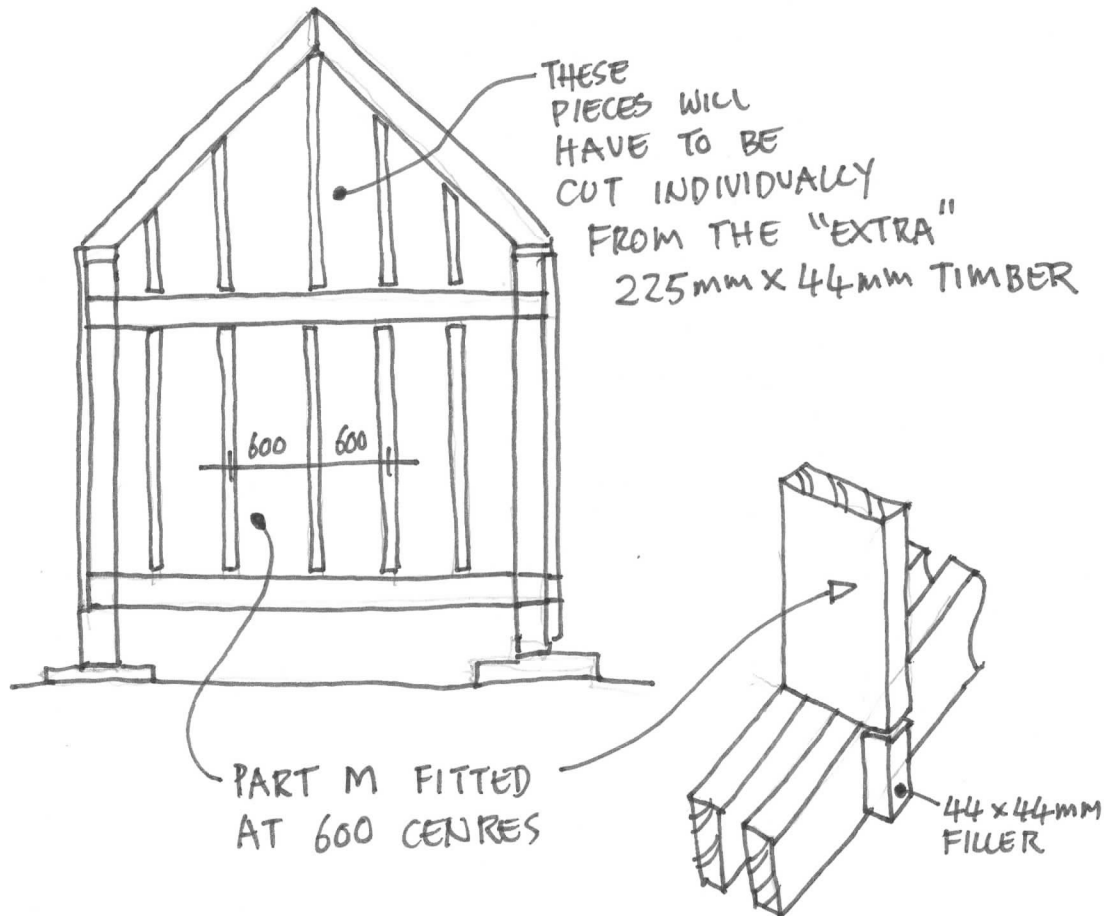 THESE
PIECES WILL
HAVE TO BE
CUT INDIVIDUALLY
FROM THE "EXTRA"
225mm X 44mm TIMBER
600 600
PART M FITTED
AT 600 CENRES
44 x 44mm
FILLER